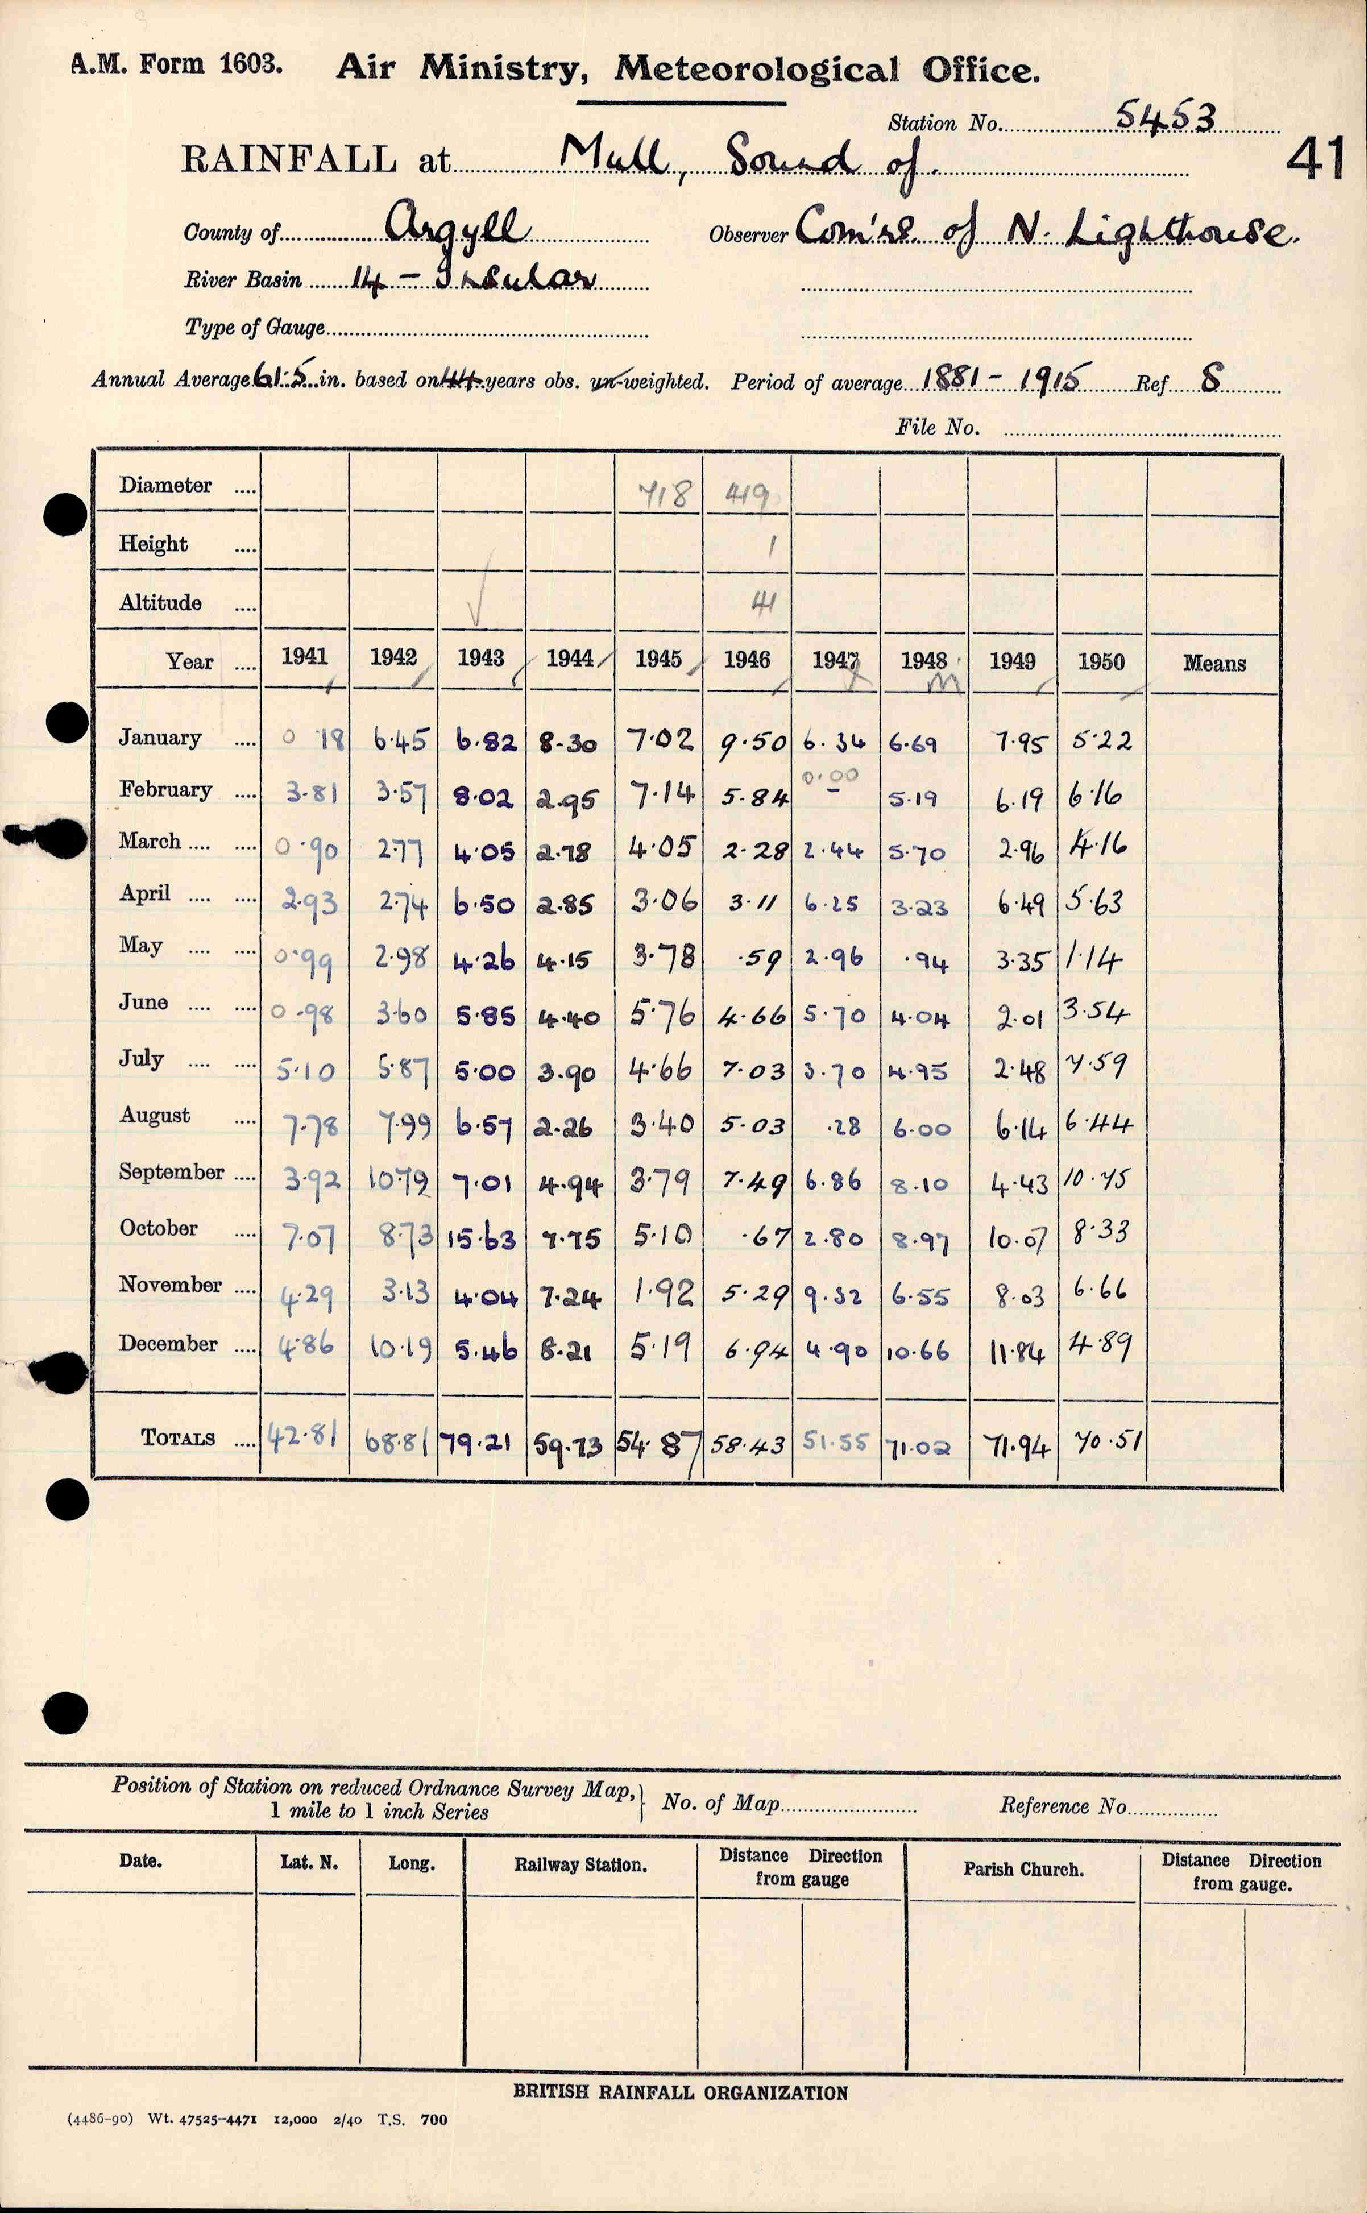 A.M. Form 1603. Air Ministry, Meteorological Office.
Station No. 5453
41
RAINFALL at Mull, Sound of.
County of Argyll Observer Com'rs. of N. Lighthouse.
River Basin 14 - Insular
Type of Gauge
Annual Average 61.5 in. based on 44 years obs. un-weighted. Period of average 1881 - 1915 Ref S
File No.
Diameter .... 718 419
Height .... 1
Altitude .... 41
Year .... 1941 1942 1943 1944 1945 1946 1947 1948 1949 1950 Means
January .... 0 18 6.45 6.82 8.30 7.02 9.50 6.34 6.69 7.95 5.22
February .... 3.81 3.57 8.02 2.95 7.14 5.84 0.00 - 5.19 6.19 6.16
March .... .... 0.90 2.77 4.05 2.78 4.05 2.28 2.44 5.70 2.96 4.16
April .... .... 2.93 2.74 6.50 2.85 3.06 3.11 6.25 3.23 6.49 5.63
May .... .... 0.99 2.98 4.26 4.15 3.78 .59 2.96 .94 3.35 1.14
June .... .... 0.98 3.60 5.85 4.40 5.76 4.66 5.70 4.04 2.01 3.54
July .... .... 5.10 5.87 5.00 3.90 4.66 7.03 3.70 4.95 2.48 7.59
August .... 7.78 7.99 6.57 2.26 3.40 5.03 .28 6.00 6.14 6.44
September .... 3.92 10.79 7.01 4.94 3.79 7.49 6.86 8.10 4.43 10.75
October .... 7.07 8.73 15.63 7.75 5.10 .67 2.80 8.97 10.07 8.33
November .... 4.29 3.13 4.04 7.24 1.92 5.29 9.32 6.55 8.03 6.66
December .... 4.86 10.19 5.46 8.21 5.19 6.94 4.90 10.66 11.84 4.89
TOTALS .... 42.81 68.81 79.21 59.73 54.87 58.43 51.55 71.02 71.94 70.51
Position of Station on reduced Ordnance Survey Map, } No. of Map Reference No.
1 mile to 1 inch Series
Date. Lat. N. Long. Railway Station. Distance Direction from gauge Parish Church. Distance Direction from gauge.
BRITISH RAINFALL ORGANIZATION
(4486-90) Wt. 47525-4471 12,000 2/40 T.S. 700